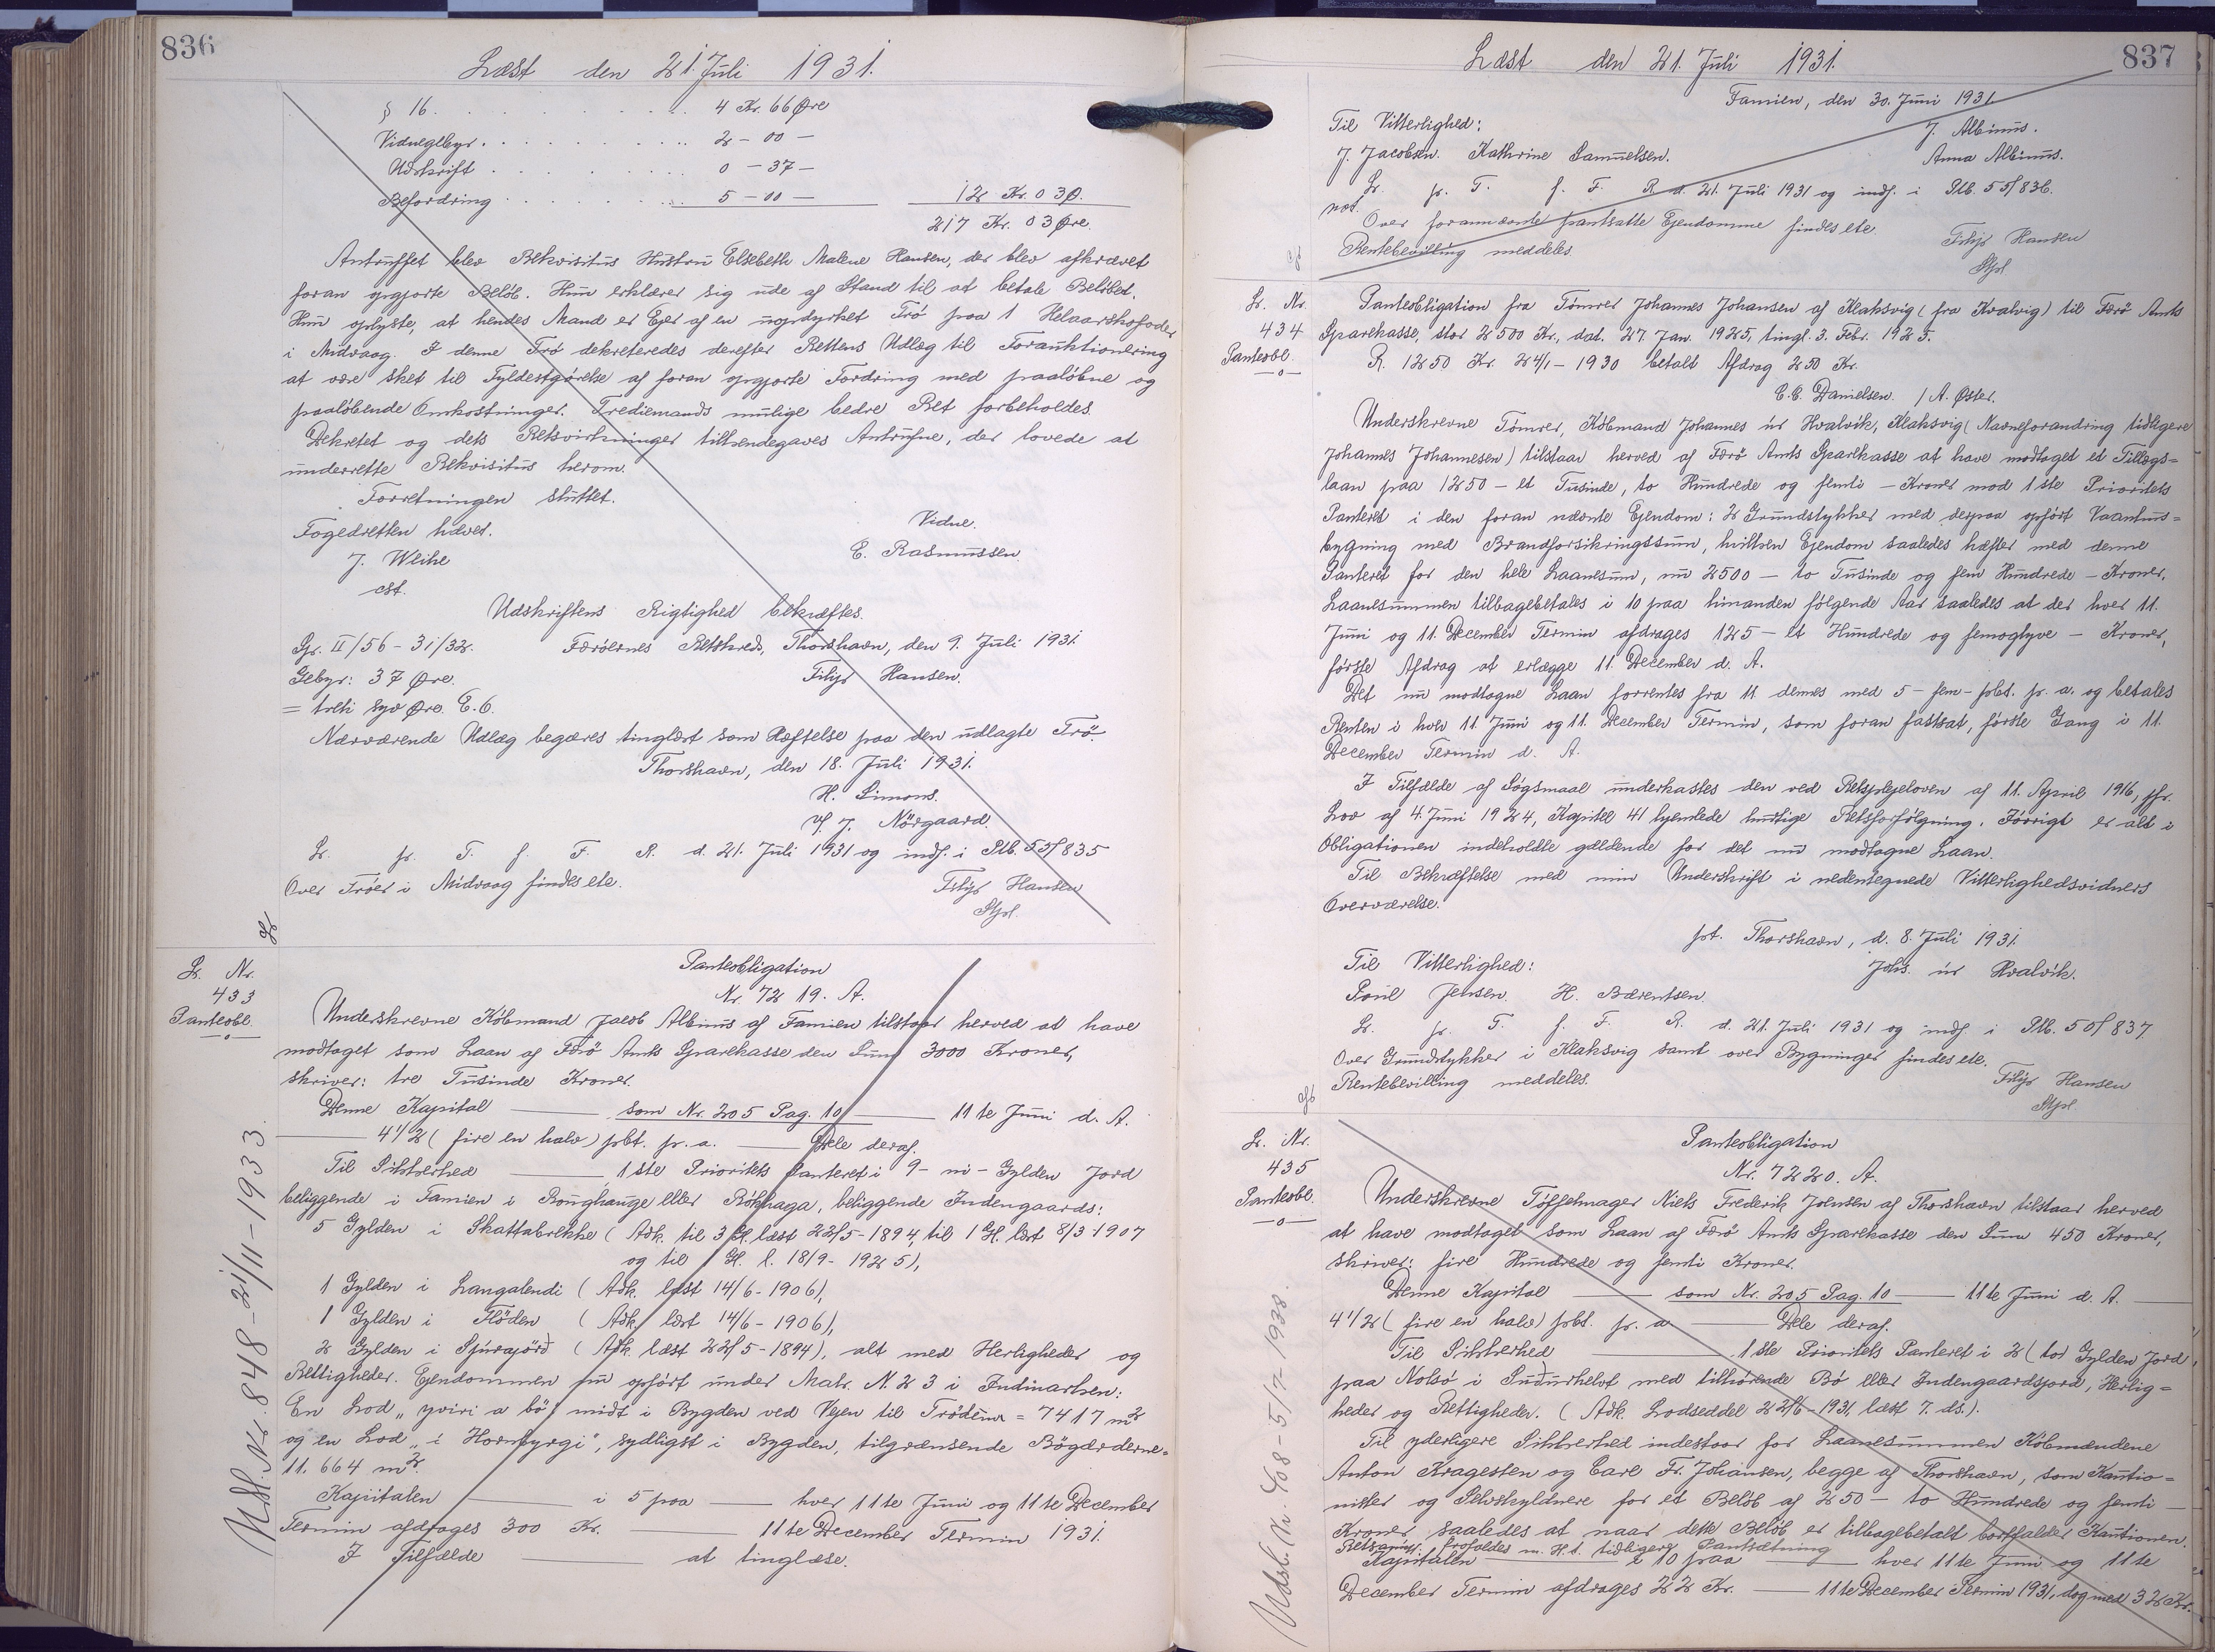 836
Læst den 21. Juli 1931.
§ 16. 4 Kr. 66 Øre
Vidnegebyr. 2 - 00 -
Udskrift 0 - 37 -
Befordring 5 - 00 - 12 Kr. 03 Ø.
217 Kr. 03 Øre.
Antruffet blev Rekvisitus Hustru Elsebeth Malene Hansen, der blev afkrævet
foran opgjorte Beløb. Hun erklærer sig ude af Stand til at betale Beløbet.
Hun oplyste, at hendes Mand er Ejer af en uopdyrket Trö paa 1 Helaarskofoder
i Midvaag. I denne Trö dekreteredes derefter Rettens Udlæg til Forauktionering
at være sket til Fyldestgørelse af foran opgjorte Fordring med paaløbne og
paaløbende Omkostninger. Trediemands mulige bedre Ret forbeholdes.
Dekretet og dets Retsvirkninger tilkendegaves Antrufne, der lovede at
underrette Rekvisitus herom.
Forretningen sluttet.
Fogedretten hævet.
Vidne.
J. Weihe
E. Rasmussen
cst.
Udskriftens Rigtighed bekræftes.
Gr. II/56 - 31/32. Færøernes Retskreds, Thorshavn, den 9. Juli 1931
Gebyr: 37 Øre. Filip Hansen.
= treti syv Øre. E.6.
Nærværende Udlæg begæres tinglæst som Hæftelse paa den udlagte Trö.
Thorshavn, den 18. Juli 1931.
H. Simons.
v/ J. Nörgaard.
L. p. T. f. F. R. d. 21. Juli 1931 og indf. i Ptb. 55/835
Over Tröer i Midvaag findes ete.
Filip Hansen
Stpl.
L. Nr.
433
Panteobl.
Panteobligation
Nr. 7219. A.
Underskrevne Købmand Jacob Albinus af Famien tilstaar herved at have
modtaget som Laan af Færø Amts Sparekasse den Sum 3000 Kroner,
skriver: tre Tusinde Kroner.
Denne Kapital — som Nr. 205 Pag. 10 — 11te Juni d. A.
— 4 1/2 (fire en halv) pCt. p. a. — Dele deraf.
Til Sikkerhed — 1ste Prioritets Panteret i 9 - ni - Gylden Jord
beliggende i Famien i Boughauge eller Bókhaga, beliggende Indengaards:
5 Gylden i Skattabrekke (Adk. til 3 Gl. læst 22/5-1894, til 1 Gl. læst 8/3-1907
og til 1 Gl. l. 18/9-1925),
1 Gylden i Langalendi (Adk. læst 14/6-1906),
1 Gylden i Flöden (Adk. læst 14/6-1906),
2 Gylden i Spurajörð (Adk. læst 22/5-1894), alt med Herligheder og
Rettigheder. Ejendommen nu opført under Matr. N. 23 i Indmarken:
En Lod "yviri a bö", midt i Bygden ved Vejen til Tröðenar = 7417 m²
og en Lod "i Hornbyrgi", sydligst i Bygden, tilgrænsende Bögærderne =
11.664 m².
Kapitalen — i 5 paa — hver 11te Juni og 11te December
Termin afdrages 300 Kr. — 11te December Termin 1931.
I Tilfælde — at tinglæse.
Udsl. Nr. 848 - 21/11-1933
837
Læst den 21. Juli 1931.
Famien, den 30. Juni 1931.
Til Vitterlighed: J. Albinus.
J. Jacobsen. Kathrine Samuelsen. Anna Albinus.
L. p. T. f. F. R. d. 21. Juli 1931 og indf. i Ptb. 55/836.
Over forannævnte pantsatte Ejendomme findes ete.
Rentebevilling meddeles.
Filip Hansen
Stpl.
L. Nr.
434
Panteobl.
Panteobligation fra Tømrer Johannes Johansen af Klaksvig (fra Kvalvig) til Færø Amts
Sparekasse, stor 2500 Kr., dat. 27. Jan. 1925, tingl. 3. Febr. 1925.
R. 1250 Kr. 24/1-1930 betalt Afdrag 250 Kr.
C.C. Danielsen. / A. Øster.
Underskrevne Tømrer, Købmand Johannes úr Hvalvík, Klaksvig (Navneforandring tidligere
Johannes Johannesen) tilstaar herved af Færø Amts Sparekasse at have modtaget et Tillægs=
laan paa 1250 - et Tusinde, to Hundrede og femti - Kroner mod 1ste Prioritets
Panteret i den foran nævnte Ejendom: 2 Grundstykker med derpaa opført Vaanhus=
bygning med Brandforsikringssum, hvilken Ejendom saaledes hæfter med denne
Panteret for den hele Laanesum, nu 2500 - to Tusinde og fem Hundrede - Kroner.
Laanesummen tilbagebetales i 10 paa hinanden følgende Aar saaledes at der hver 11.
Juni og 11. December Termin afdrages 125 - et Hundrede og femogtyve - Kroner,
første Afdrag at erlægge 11. December d. A.
Det nu modtagne Laan forrentes fra 11 dennes med 5 - fem - pCt. p. a. og betales
Renten i hver 11. Juni og 11. December Termin, som foran fastsat, første Gang i 11.
December Termin d. A.
I Tilfælde af Søgsmaal underkastes den ved Retsplejeloven af 11. April 1916, jfr.
Lov af 4. Juni 1924, Kapitel 41 hjemlede hurtige Retsforfølgning. Iøvrigt er alt i
Obligationen indeholdte gældende for det nu modtagne Laan.
Til Bekræftelse med min Underskrift i nedentegnede Vitterlighedsvidners
Overværelse.
pt. Thorshavn, d. 8. Juli 1931.
Til Vitterlighed: Johs. úr Hvalvík.
Poul Jensen. H. Bærentsen.
L. p. T. f. F. R. d. 21. Juli 1931 og indf. i Ptb. 50/837.
Over Grundstykker i Klaksvig samt over Bygninger findes ete.
Rentebevilling meddeles.
Filip Hansen
Stpl.
L. Nr.
435
Panteobl.
Panteobligation
Nr. 7220. A.
Underskrevne Tøffelmager Niels Frederik Joensen af Thorshavn tilstaar herved
at have modtaget som Laan af Færø Amts Sparekasse den Sum 450 Kroner,
skriver: fire Hundrede og femti Kroner.
Denne Kapital — som Nr. 205 Pag. 10 — 11te Juni d. A. —
4 1/2 (fire en halv) pCt. p. a — Dele deraf.
Til Sikkerhed — 1ste Prioritets Panteret i 2 (to) Gylden Jord
paa Nolsø i Suðurhelvt med tilhørende Bö eller Indengaardsjord, Herlig=
heder og Rettigheder. (Adk. Lodseddel 22/6-1931, læst 7. ds.).
Til yderligere Sikkerhed indestaar for Laanesummen Købmændene
Anton Kragesten og Carl Fr. Johansen, begge af Thorshavn, som Kautio=
nister og Selvskyldnere for et Beløb af 250 - to Hundrede og femti -
Kroner, saaledes at naar dette Beløb er tilbagebetalt bortfalder Kautionen.
m. H. t. tidligere Pantsætning
Kapitalen — i 10 paa — hver 11te Juni og 11te
December Termin afdrages 22 Kr. — 11te December Termin 1931, dog med 32 Kr.
Udsl. Nr. 408 - 5/7-1938.